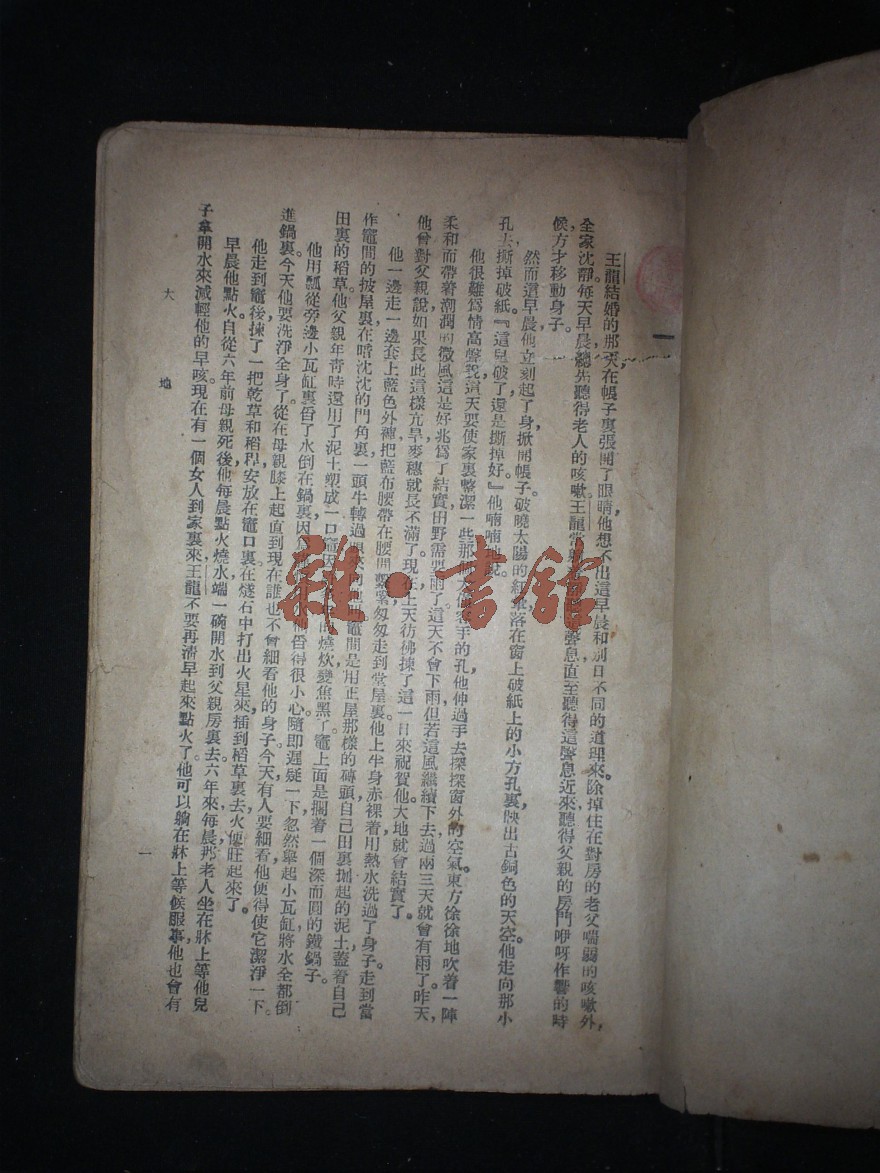 一
王龍結婚的那天，在帳子裏張開了眼睛，他想不出這早晨和別日不同的道理來。除掉住在對房的老父喘弱的咳嗽外，
全家沈靜。每天早晨總先聽得老人的咳嗽。王龍常 聲息，直至聽得這聲息近來，聽得父親的房門咿呀作響的時
候，方才移動身子。
然而這早晨他立刻起了身，掀開帳子。破曉太陽的紅 落在窗上破紙上的小方孔裏，映出古銅色的天空。他走向那小
孔去，撕掉破紙。『這兒破了，還是撕掉好。』他喃喃地說。
他很難爲情高聲說，這天要使家裏整潔一些。那 手的孔，他伸過手去探探窗外的空氣。東方徐徐地吹着一陣
柔和而帶着潮潤的微風，這是好兆。爲了結實，田野需要雨了。這天不會下雨，但若這風繼續下去，過兩三天就會有雨了。昨天，
他曾對父親說，如果長此這樣亢旱，麥穗就長不滿了。現在上天彷彿揀了這一日來祝賀他。大地就會結實了。
他一邊走，一邊套上藍色外褲，把藍布腰帶在腰間繫緊，匆匆走到堂屋裏。他上半身赤裸着，用熱水洗過了身子。走到當
作竈間的披屋裏，在暗沈沈的門角裏，一頭牛轉過頭 竈間是用正屋那樣的磚頭，自己田裏掘起的泥土，蓋着自己
田裏的稻草。他父親年靑時還用了泥土塑成一口竈，因 燒炊，變焦黑了。竈上面是擱着一個深而圓的鐵鍋子。
他用瓢從旁邊小瓦缸裏舀了水，倒在鍋裏，因 舀得很小心，隨即遲疑一下，忽然舉起小瓦缸，將水全都倒
進鍋裏。今天他要洗淨全身了。從在母親膝上起直到現在，誰也不曾細看他的身子。今天有人要細看他，便得使它潔淨一下。
他走到竈後，揀了一把乾草和稻稈，安放在竈口裏，在燧石中打出火星來，插到稻草裏去，火便旺起來了。
早晨他點火。自從六年前母親死後，他每晨點火燒水，端一碗開水到父親房裏去。六年來，每晨那老人坐在牀上，等他兒
子拿開水來減輕他的早咳。現在有一個女人到家裏來，王龍不要再淸早起來點火了。他可以躺在牀上等候服事，他也會有
大 地
一
雜·書館